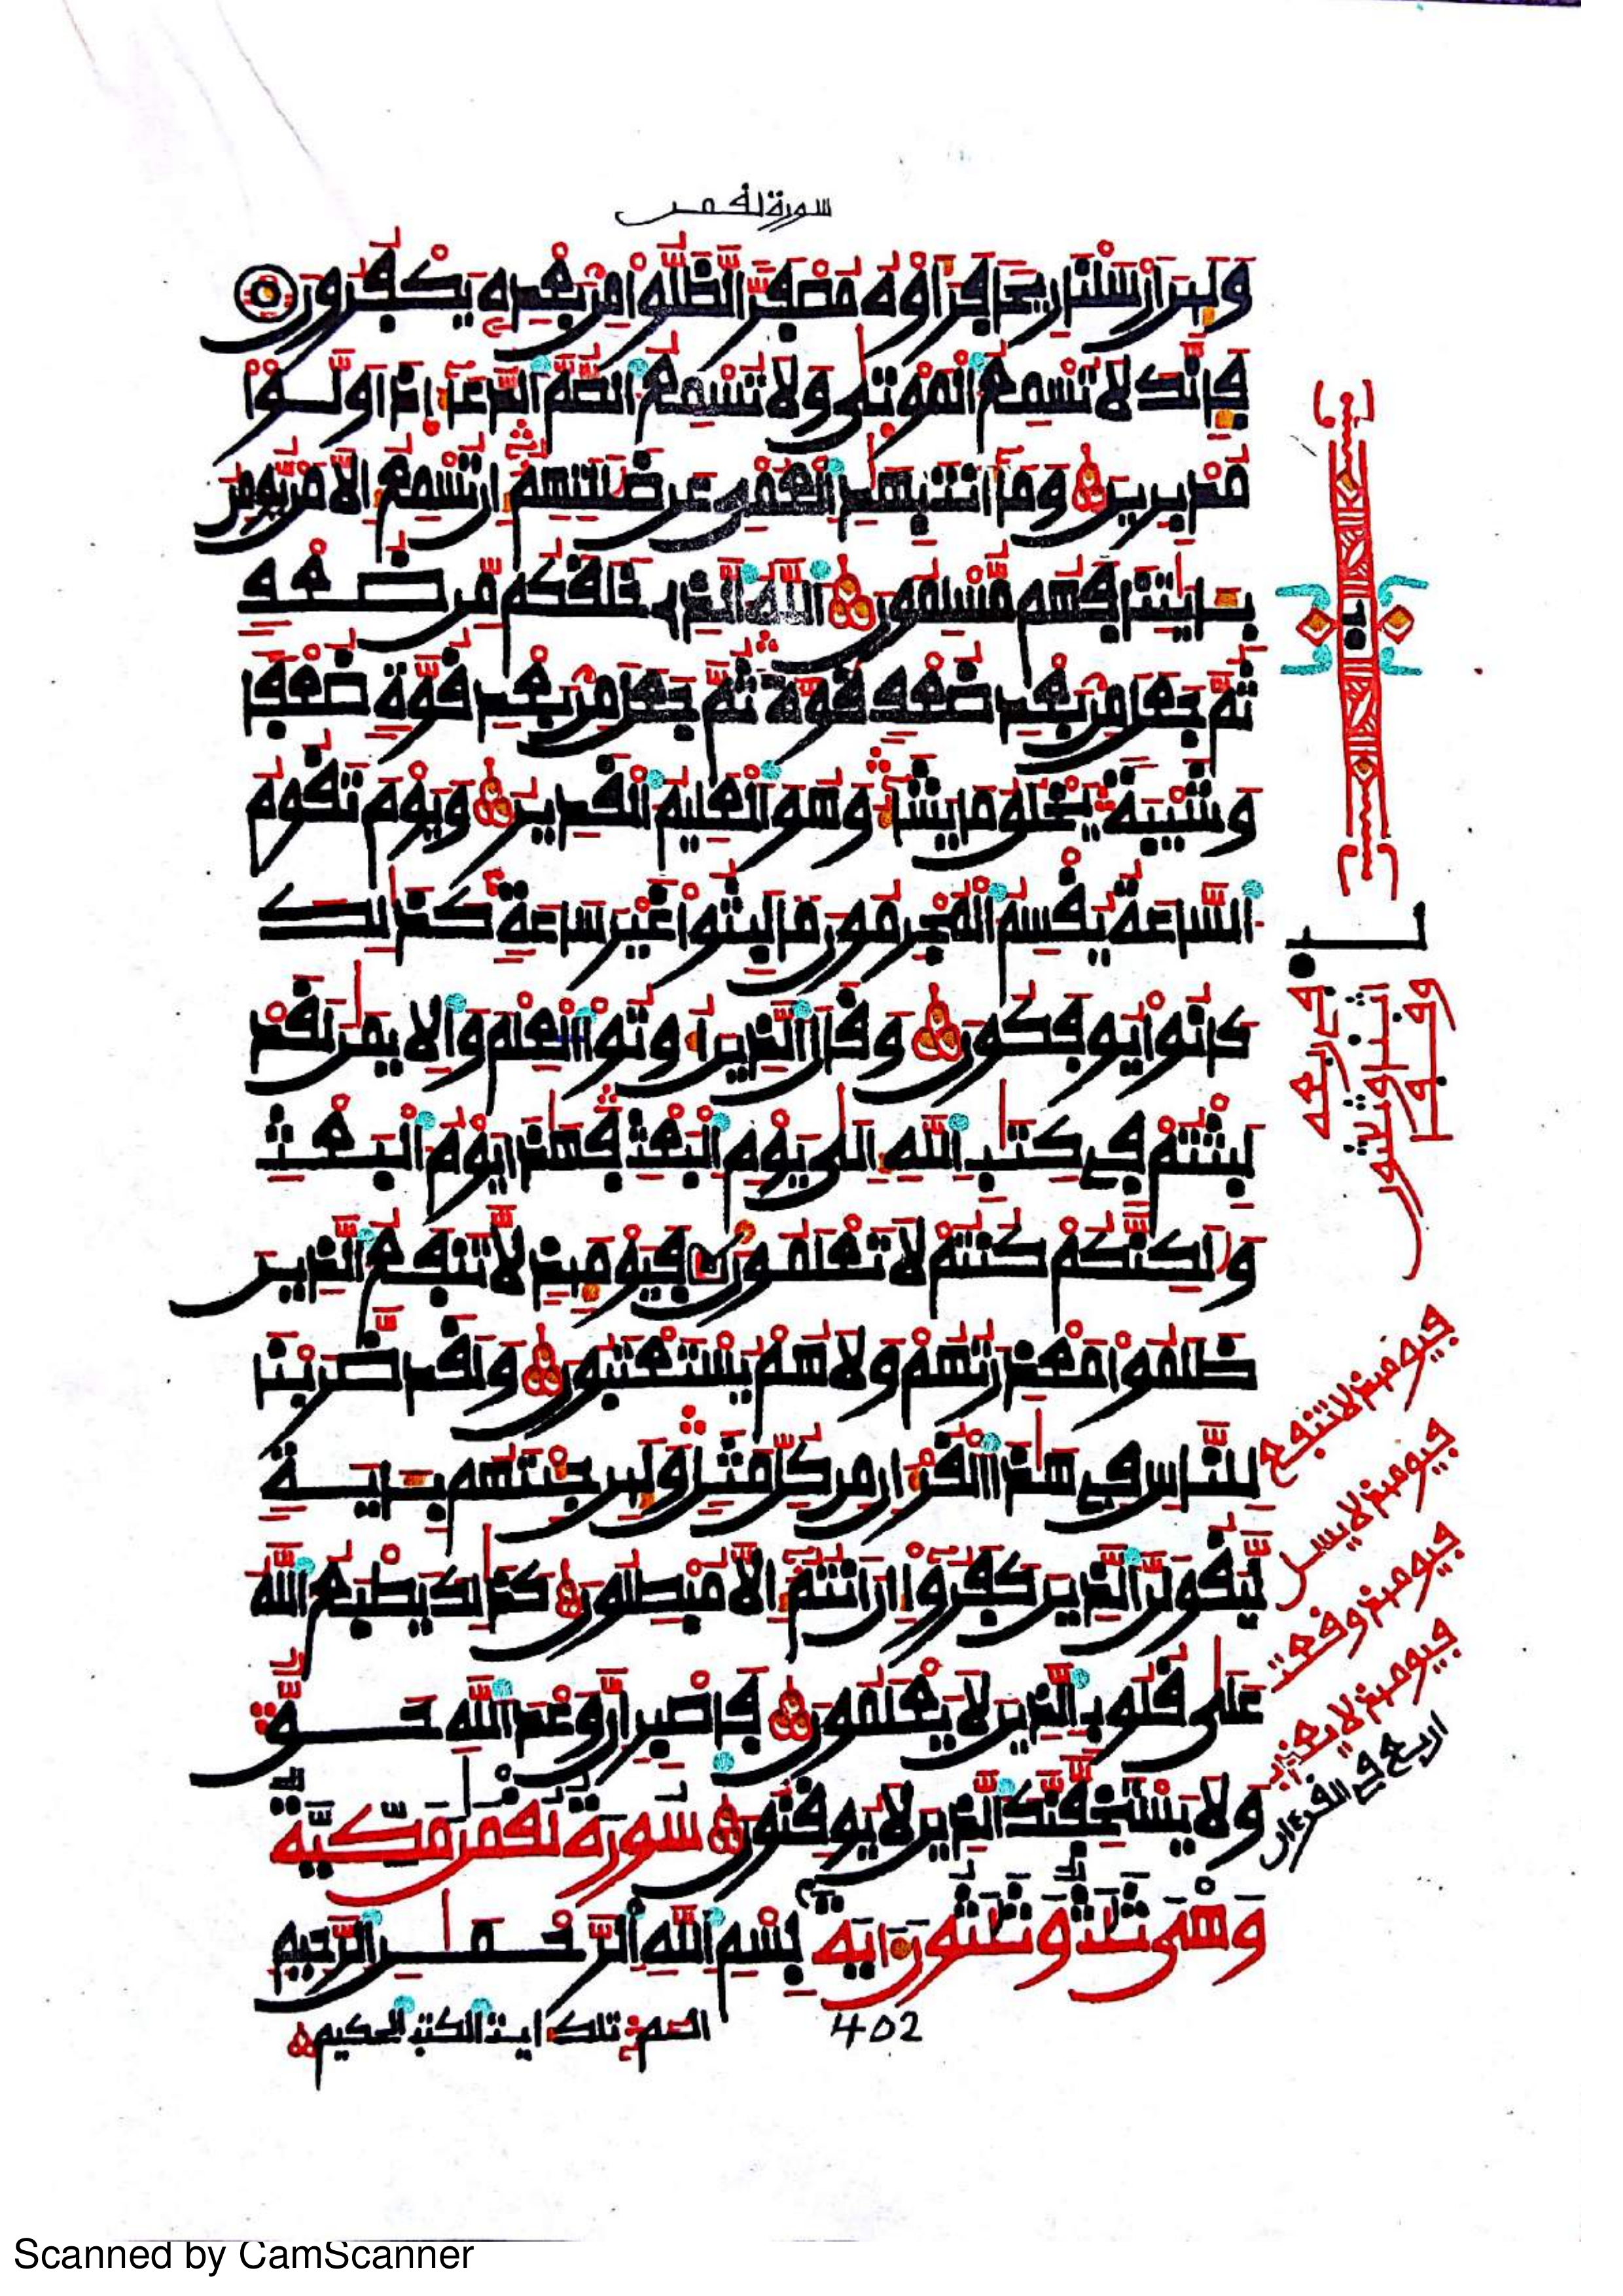 سورة لقمن
وَلَئِنَ ارْسَلْنَا رِيحًا فَرَأَوْهُ مُصْفَرًّا لَّظَلُّواْ مِنۢ بَعْدِهِۦ يَكْفُرُونَ
فَإِنَّكَ لَا تُسْمِعُ الْمَوْتَىٰ وَلَا تُسْمِعُ الصُّمَّ الدُّعَآءَ اذَا وَلَّوْاْ
مُدْبِرِينَ وَمَآ أَنتَ بِهَٰدِ الْعُمْيِ عَن ضَلَٰلَتِهِمُۥٓ إِن تُسْمِعُ إِلَّا مَنْ يُّومِنُ
بِـَٔايَٰتِنَا فَهُم مُّسْلِمُونَ اللَّهُ الذِي خَلَقَكُم مِّن ضُعْفٍ
ثُمَّ جَعَلَ مِنۢ بَعْدِ ضُعْفٍ قُوَّةً ثُمَّ جَعَلَ مِنۢ بَعْدِ قُوَّةٍ ضُعْفًا
وَشَيْبَةً يَخْلُقُ مَا يَشَآءُ وَهُوَ الْعَلِيمُ الْقَدِيرُ وَيَوْمَ تَقُومُ
السَّاعَةُ يُقْسِمُ الْمُجْرِمُونَ مَا لَبِثُواْ غَيْرَ سَاعَةٍ كَذَٰلِكَ
كَانُواْ يُوفَكُونَ وَقَالَ الذِينَ أُوتُواْ الْعِلْمَ وَالِايمَٰنَ لَقَدْ
لَبِثْتُمْ فِي كِتَٰبِ اللَّهِ إِلَىٰ يَوْمِ الْبَعْثِ فَهَٰذَا يَوْمُ الْبَعْثِ
وَلَٰكِنَّكُمْ كُنتُمْ لَا تَعْلَمُونَ فَيَوْمَئِذٍ لَّا تَنفَعُ الذِينَ
ظَلَمُواْ مَعْذِرَتُهُمْ وَلَا هُمْ يُسْتَعْتَبُونَ وَلَقَدْ ضَرَبْنَا
لِلنَّاسِ فِي هَٰذَا الْقُرْءَانِ مِن كُلِّ مَثَلٍ وَلَئِن جِئْتَهُم بِـَٔايَةٍ
لَّيَقُولَنَّ الذِينَ كَفَرُوٓاْ إِنَ انتُمُۥٓ إِلَّا مُبْطِلُونَ كَذَٰلِكَ يَطْبَعُ اللَّهُ
عَلَىٰ قُلُوبِ الذِينَ لَا يَعْلَمُونَ فَاصْبِرِ انَّ وَعْدَ اللَّهِ حَقٌّ
وَلَا يَسْتَخِفَّنَّكَ الذِينَ لَا يُوقِنُونَ سُورَةُ لُقْمَٰنَ مَكِّيَّةٌ
وَهْيَ ثَلَٰثٌ وَثَلَٰثُونَ ءَايَةً بِسْمِ اللَّهِ الرَّحْمَٰنِ الرَّحِيمِ
402
الٓمٓ تلك ايت الكتب الحكيم
فيومئذ لا تنفع
فيومئذ لا يسل
فيومئذ وقعت
فيومئذ لا يعذب
اربع في القرءان
Scanned by CamScanner